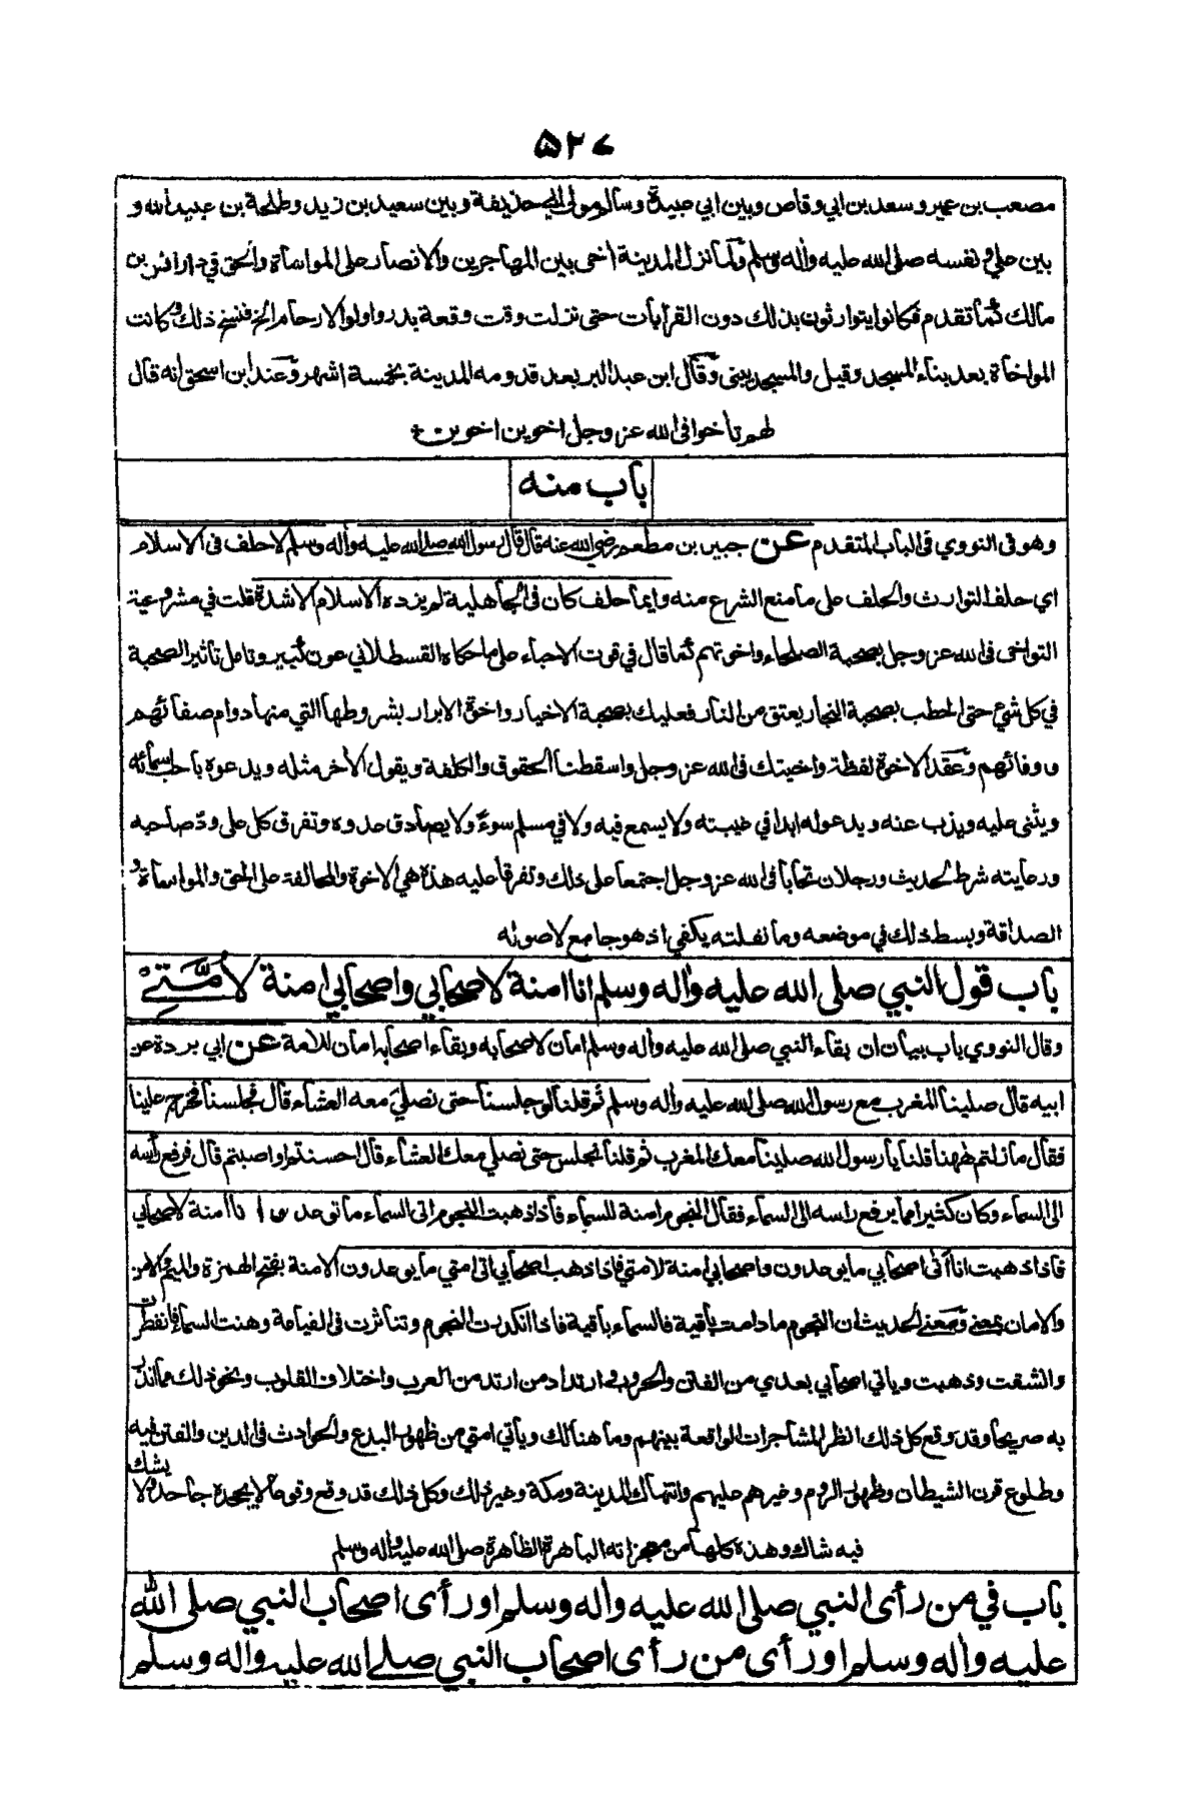 ٥٢٧
مصعب بن عمير وسعد بن ابي وقاص وبين ابي عبيدة وسالم مولى ابي حذيفة وبين سعيد بن زيد وطلحة بن عبيد الله و
بين علي ونفسه صلى الله عليه وأله وسلم ولما نزل المدينة اخى بين المهاجرين والانصار على المواساة والحق في دار انس بن
مالك كما تقدم فكانوا يتوارثون بذلك دون القرابات حتى نزلت وقت وقعة بدر واولوا الارحام الخ فنسخ ذلك وكانت
المواخاة بعد بناء المسجد وقيل والمسجد يبنى وقال ابن عبد البر بعد قدومه المدينة بخمسة اشهر وعند ابن اسحق انه قال
لهم تأخوا فى الله عز وجل اخوين اخوين
باب منه
وهو فى النووي فى الباب المتقدم عن جبير بن مطعم رضي الله عنه قال قال رسول الله صلى الله عليه وأله وسلم لا حلف فى الاسلام
اي حلف التوارث والحلف على ما منع الشرع منه وايما حلف كان فى الجاهلية لم يزده الاسلام الا شدة قلت في مشروعية
التواخى فى الله عز وجل بصحبة الصلحاء واخوتهم كما قال في قوت الاحباء على ما حكاه القسطلاني عون كبير وتامل تاثير الصحبة
في كل شيء حتى الحطب بصحبة النجار يعتق من النار فعليك بصحبة الاخيار واخوة الابرار بشروطها التي منها دوام صفائهم
ووفائهم وعقد الاخوة لفظة واخيتك فى الله عز وجل واسقطنا الحقوق والكلفة ويقول الأخر مثله ويدعوه بأحب اسمائه
ويثنى عليه ويذب عنه ويدعو له ابدا في غيبته ولا يسمع فيه ولا في مسلم سوء ولا يصادق عدوه وتفرق كل على ود صاحبه
ورعايته شرط الحديث ورجلان تحابا فى الله عز وجل اجتمعا على ذلك وتفرقا عليه هذه هي الاخوة والمحالفة على الحق والمواساة و
الصداقة وبسط ذلك في موضعه وما نقلته يكفي اذ هو جامع لاصوله
باب قول النبي صلى الله عليه وأله وسلم انا امنة لاصحابي واصحابي امنة لأمتي
وقال النووي باب بيان ان بقاء النبي صلى الله عليه وأله وسلم امان لاصحابه وبقاء اصحابه امان للامة عن ابي بردة عن
ابيه قال صلينا المغرب مع رسول الله صلى الله عليه وأله وسلم ثم قلنا لو جلسنا حتى نصلي معه العشاء قال فجلسنا فخرج علينا
فقال ما زلتم ههنا قلنا يا رسول الله صلينا معك المغرب ثم قلنا نجلس حتى نصلي معك العشاء قال احسنتم او اصبتم قال فرفع رأسه
الى السماء وكان كثيرا مما يرفع راسه الى السماء فقال النجوم امنة للسماء فاذا ذهبت النجوم اتى السماء ما توعد وانا امنة لاصحابي
فاذا ذهبت انا أتى اصحابي ما يوعدون واصحابي امنة لامتي فاذا ذهب اصحابي اتى امتي ما يوعدون الامنة بفتح الهمزة والميم والامن
والامان بمعنى ومعنى الحديث ان النجوم ما دامت باقية فالسماء باقية فاذا انكدرت النجوم وتناثرت فى القيامة وهنت السماء فانفطرت
وانشقت وذهبت وياتي اصحابي بعدي من الفتن والحروب وارتداد من ارتد من العرب واختلاف القلوب ونحو ذلك مما انذر
به صريحا وقد وقع كل ذلك انظر المشاجرات الواقعة بينهم وما هنالك ويأتي امتي من ظهور البدع والحوادث فى الدين والفتن فيه
وطلوع قرن الشيطان وظهور الروم وغيرهم عليهم وانتهاك المدينة ومكة وغير ذلك وكل ذلك قد وقع وقوعا لا يجحده جاحد ولا يشك
فيه شاك وهذه كلها من معجزاته الباهرة الظاهرة صلى الله عليه وأله وسلم
باب في من رأى النبي صلى الله عليه وأله وسلم او رأى اصحاب النبي صلى الله
عليه وأله وسلم او رأى من رأى اصحاب النبي صلى الله عليه وأله وسلم